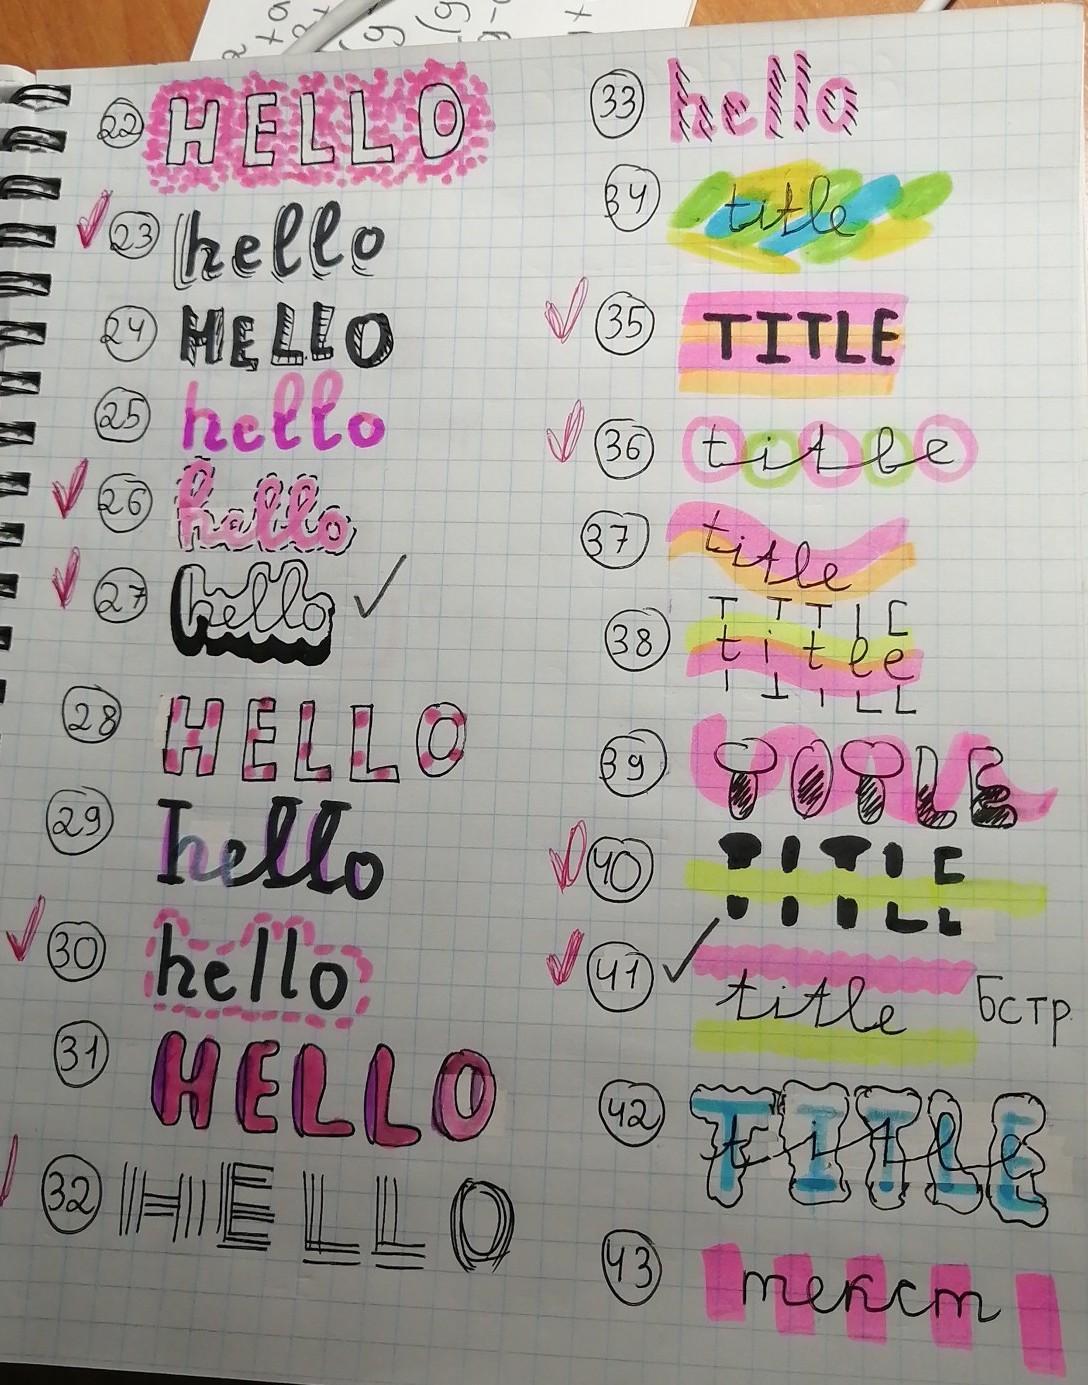 22 HELLO
23 hello
24 HELLO
25 hello
26 hello
27 hello
28 HELLO
29 hello
30 hello
31 HELLO
32 HELLO
33 hello
34 title
35 TITLE
36 title
37 title
38 title
39 TITLE
40 TITLE
41 title Бстр
42 TITLE title
43 текст